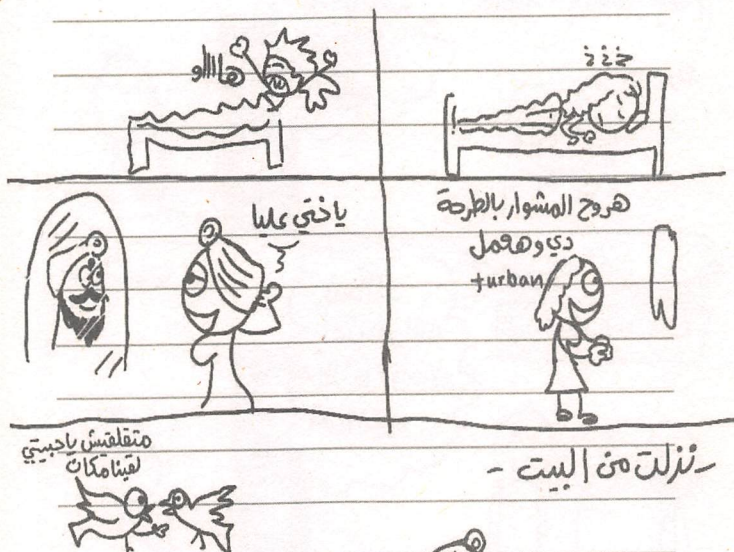 خخخخ
هااااو
هروح المشوار بالطرحة
دي وهعمل
turban
ياختي عليا
- نزلت من البيت -
متقلقيش يا حبيبتي
لقينا مكان